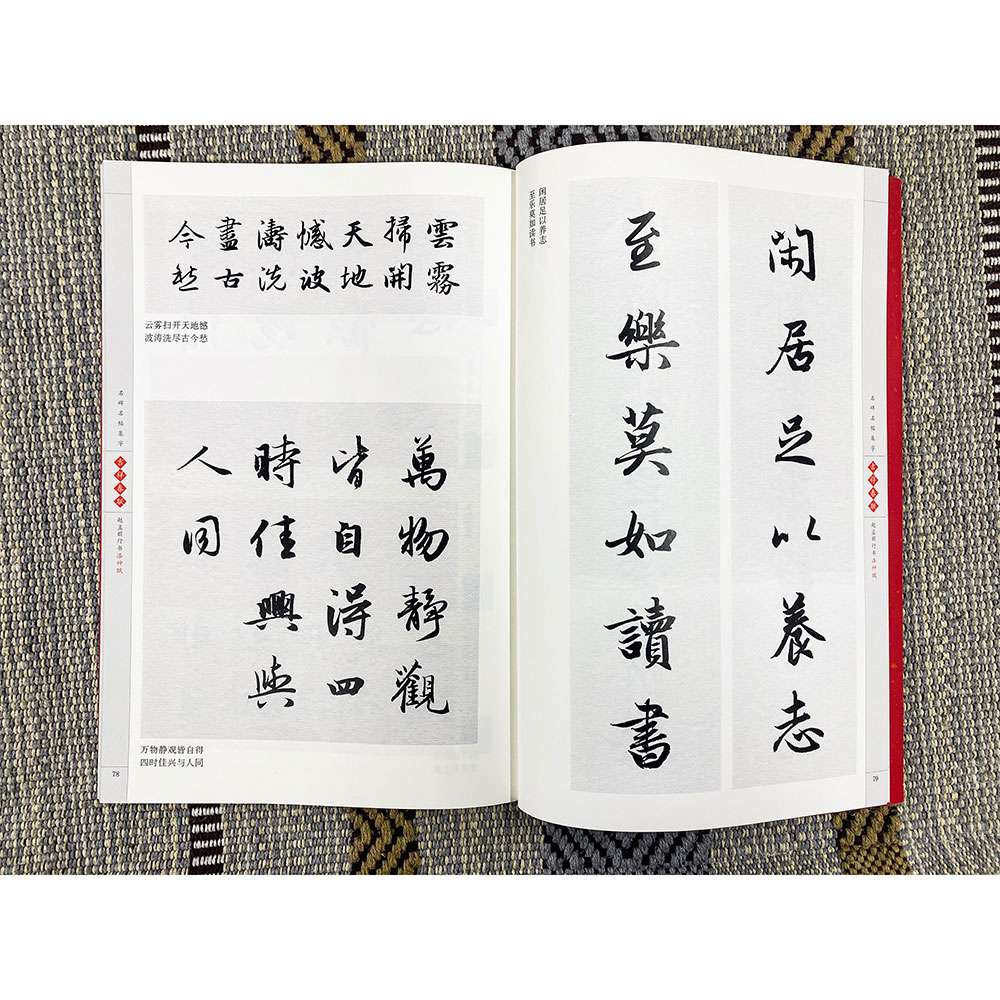 雲霧
掃開
天地
憾波
濤洗
盡古
今愁
云雾扫开天地憾
波涛洗尽古今愁
萬物靜觀
皆自得四
時佳興與
人同
万物静观皆自得
四时佳兴与人同
名碑名帖集字
吉祥春联
赵孟頫行书洛神赋
78
閑居足以養志
至樂莫如讀書
闲居足以养志
至乐莫如读书
名碑名帖集字
吉祥春联
赵孟頫行书洛神赋
79